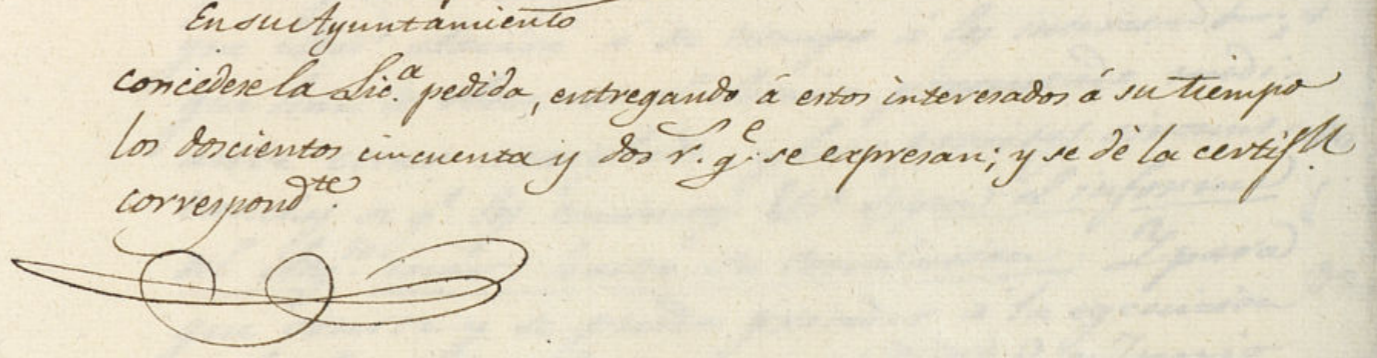 En su Ayuntamiento
concedese la Lic.a pedida, entregando á estos interesados á su tiempo
los doscientos cincuenta y dos r.s q.e se expresan; y se dé la certif.n
correspond.te